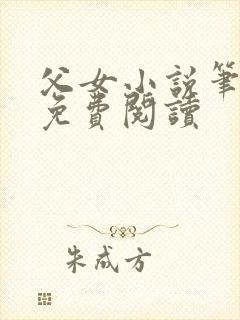 父女小说筆
免費閱讀
朱成方